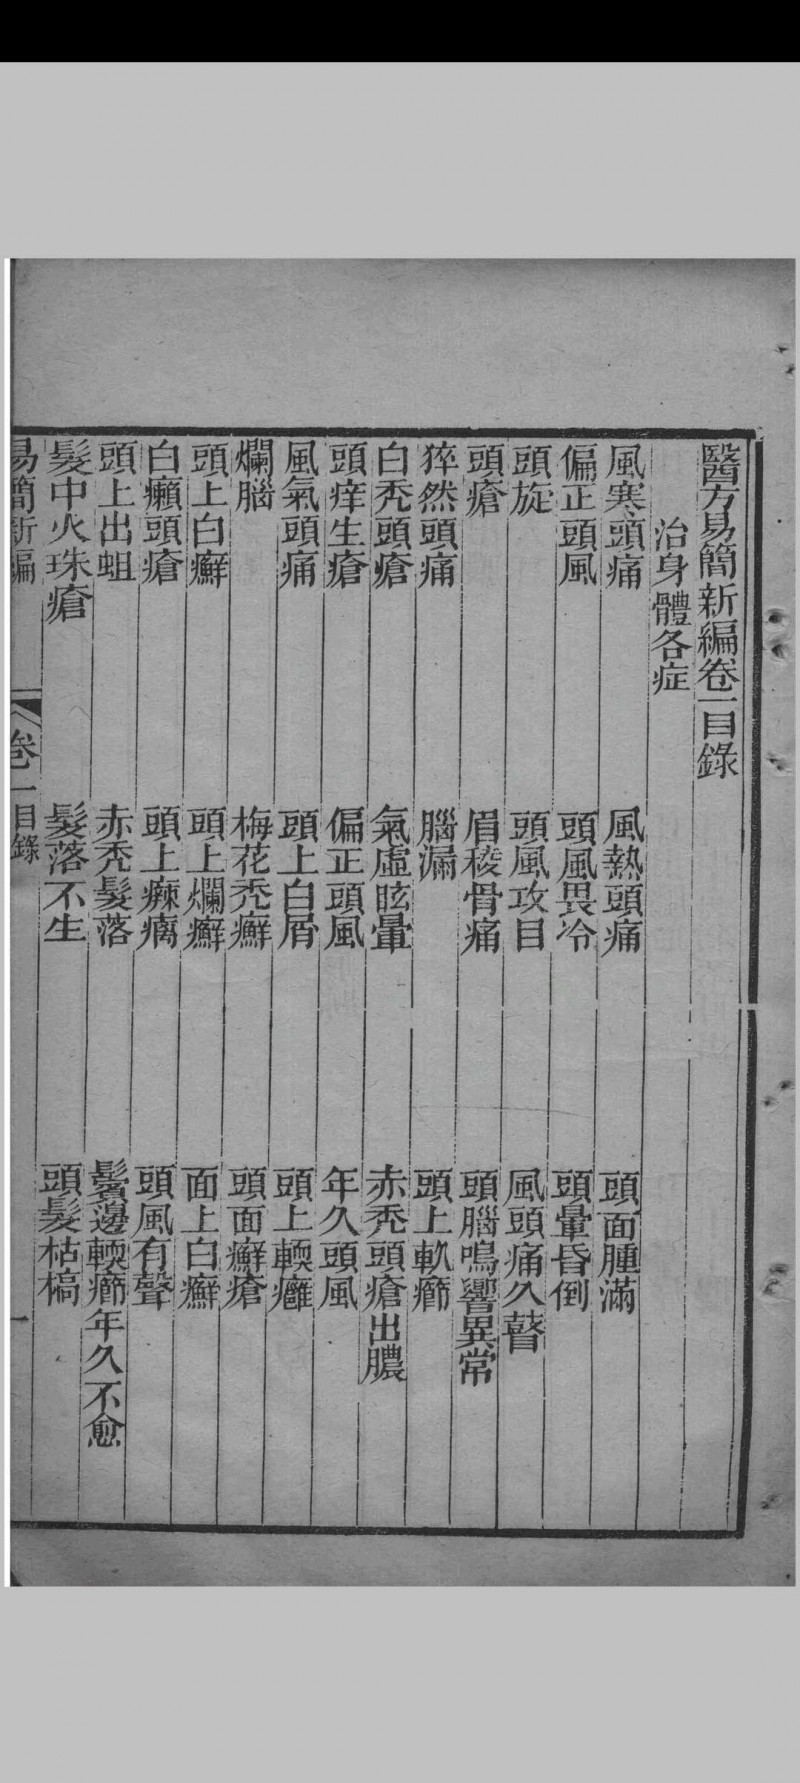 醫方易簡新編卷一目錄
治身體各症
風寒頭痛　風熱頭痛　頭面腫滿
偏正頭風　頭風畏冷　頭暈昏倒
頭旋　頭風攻目　風頭痛久瞽
頭瘡　眉稜骨痛　頭腦鳴響異常
猝然頭痛　腦漏　頭上軟癤
白禿頭瘡　氣虛眩暈　赤禿頭瘡出膿
頭痒生瘡　偏正頭風　年久頭風
風氣頭痛　頭上白屑　頭上輭癰
爛腦　梅花禿癬　頭面癬瘡
頭上白癬　頭上爛癬　面上白癬
白癩頭瘡　頭上癩癘　頭風有聲
頭上出蛆　赤禿髮落　鬢邊輭癤年久不愈
髮中火珠瘡　髮落不生　頭髮枯槁
易簡新編　卷一目錄　一